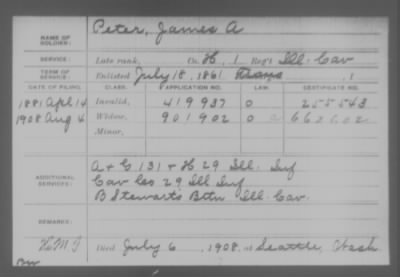 NAME OF SOLDIER: Peter, James A
SERVICE: Late rank, Co. H, 1 Reg't Ill. Cav
TERM OF SERVICE: Enlisted July 18, 1861
DATE OF FILING. CLASS. APPLICATION NO. LAW. CERTIFICATE NO.
1881 Apl 14 Invalid, 419937 0 255543
1908 Aug 4 Widow, 901902 0
Minor,
ADDITIONAL SERVICES: A + C 131 + H 29 Ill. Inf
Cav Co 29 Ill Inf
B Stewarts Ill. Cav.
REMARKS:
Died July 6, 1908, at Seattle, Wash